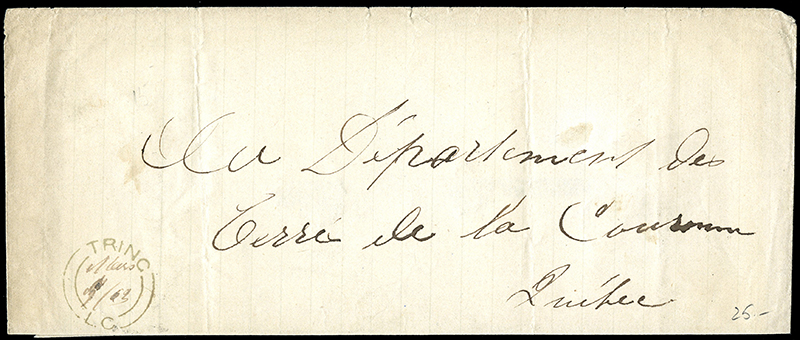 Au Département des
Terre de la Couronn
Québec
TRING
Mars
/62
L.C.
25.-